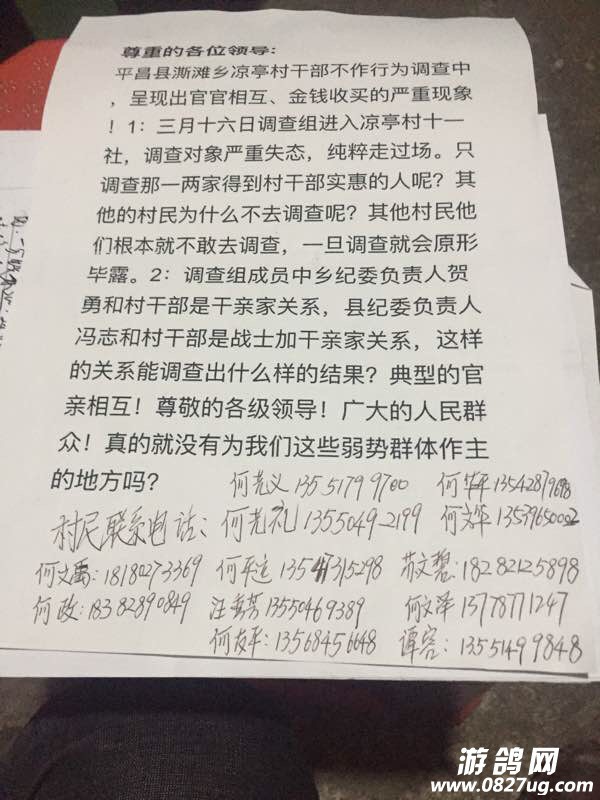 尊重的各位领导:
平昌县澌滩乡凉亭村干部不作行为调查中
，呈现出官官相互、金钱收买的严重现象
！1：三月十六日调查组进入凉亭村十一
社，调查对象严重失态，纯粹走过场。只
调查那一两家得到村干部实惠的人呢？其
他的村民为什么不去调查呢？其他村民他
们根本就不敢去调查，一旦调查就会原形
毕露。2：调查组成员中乡纪委负责人贺
勇和村干部是干亲家关系，县纪委负责人
冯志和村干部是战士加干亲家关系，这样
的关系能调查出什么样的结果？典型的官
亲相互！尊敬的各级领导！广大的人民群
众！真的就没有为我们这些弱势群体作主
的地方吗？
何光义 13551799700 何华平
村民联系电话：何光礼 13550492199 何文华
何文禹：18180273369 何平远 苏文碧：18282125898
何政：18382890849 汪秀芳 13550469389 何文泽 13778771247
何友平：13568456648 谭容：13551499848
游鸽网
www.0827ug.com